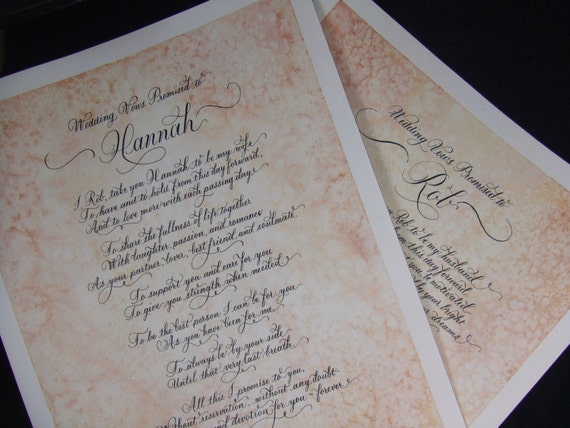 Wedding Vows Promised to
Hannah
I Rob, take you Hannah to be my wife
To have and to hold from this day forward,
And to love more with each passing day.
To share the fullness of life together
With laughter, passion, and romance
As your partner, lover, best friend and soulmate.
To support you and care for you
To give you strength when needed
To be the best person I can to for you
As you have been for me
To always be by your side
Until that very last breath
All this I promise to you,
Without reservation, without any doubt.
and devotion for you - forever
Wedding Vows Promised to
Rob
Rob to be my husband
from this day forward
be you motivated
your bright
dreams